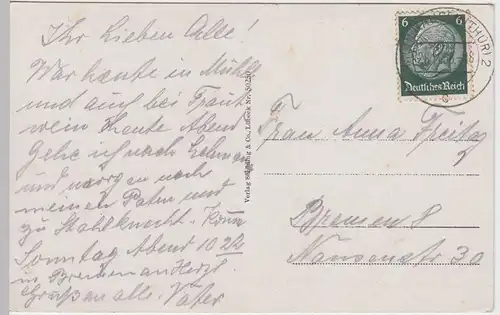 Ihr Lieben Alle!
War heute in Mühlh
und auch bei Traut
wein heute Abend
gehe ich nach
und morgen nach
meinen Paten und
zu Stahlknecht. Komm
Sonntag Abend 10 Uhr
in Bremen an Herzl.
Grüße an alle. Vater
Verlag & Co., Lübeck Nr.
6 6
Deutsches Reich
(THÜR) 2
Frau Anna Freitag
Bremen 8
Nansenstr 30